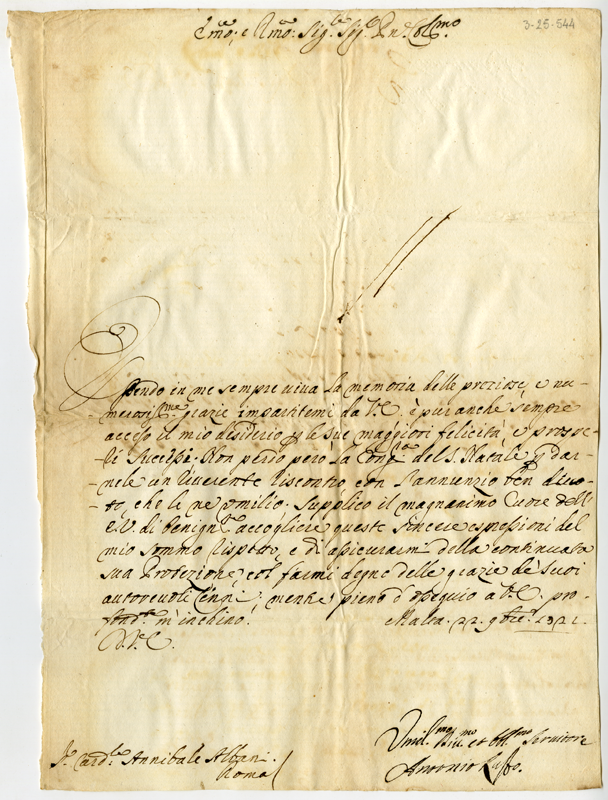 3-25-544
Em̃o; e Rm̃o: Sig.re Sig.r Pn̄e Col.mo
Essendo in me sempre viva la memoria delle preziose, e nu-
-merosis.me grazie impartitemi da V.E. è pur anche sempre
acceso il mio desiderio le sue maggiori felicità, e prospe-
-ri successi. Non perdo però la del S. Natale p dar-
-mele un riverente riscontro con l'annunzio ben divo-
-to, che le ne umilio. Supplico il magnanimo Cuore dell'
E.V. di benign.te accogliere queste sincere espressioni del
mio sommo rispetto, e di assicurarmi della continuata
sua Protezione, col farmi degno delle grazie de' suoi
autorevoli Cenni; mentre pieno d'ossequio a V.E. pro-
fond.te m'inchino. Malta 22. 9bre 1721.
D.V.E.
Umil.mo et Obl.mo Servitore
Antonio
S.r Card.le Annibale Albani
Roma